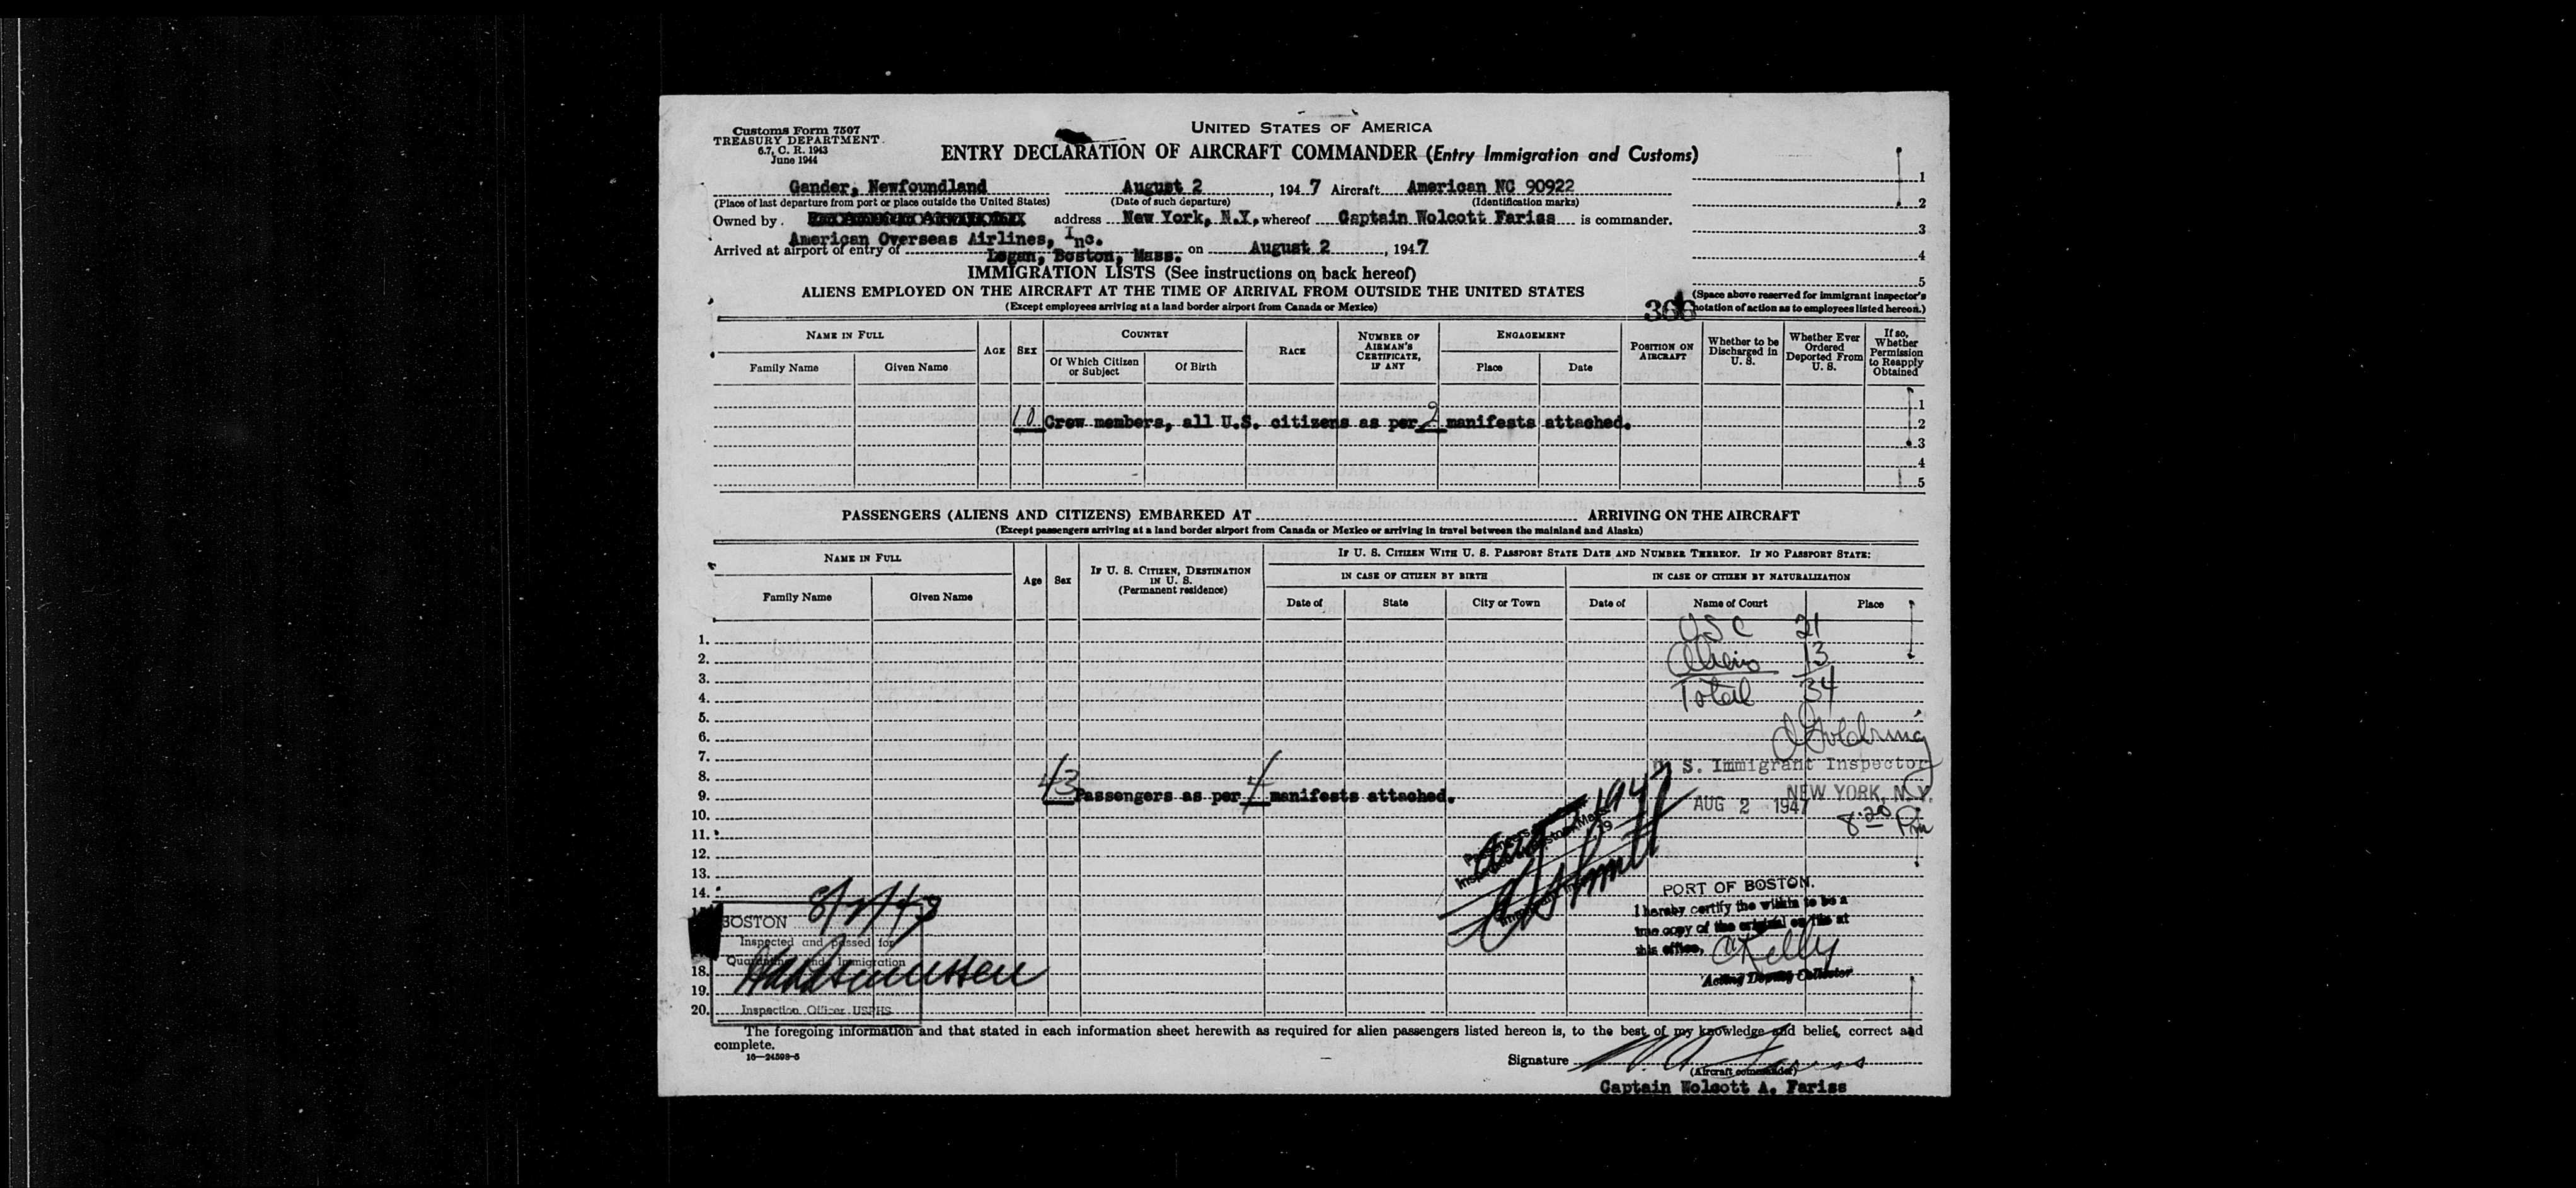 Customs Form 7507
TREASURY DEPARTMENT
6.7, C. R. 1943
June 1944
UNITED STATES OF AMERICA
ENTRY DECLARATION OF AIRCRAFT COMMANDER (Entry Immigration and Customs)
Gander, Newfoundland August 2, 1947 Aircraft American NC 90922
(Place of last departure from port or place outside the United States) (Date of such departure) (Identification marks)
Owned by address New York, N.Y. whereof Captain Wolcott Fariss is commander.
American Overseas Airlines, Inc.
Arrived at airport of entry of Logan, Boston, Mass. on August 2, 1947
1
2
3
4
5
IMMIGRATION LISTS (See instructions on back hereof)
ALIENS EMPLOYED ON THE AIRCRAFT AT THE TIME OF ARRIVAL FROM OUTSIDE THE UNITED STATES
(Except employees arriving at a land border airport from Canada or Mexico)
(Space above reserved for immigrant inspector's
notation of action as to employees listed hereon.)
NAME IN FULL
Family Name
Given Name
AGE
SEX
COUNTRY
Of Which Citizen or Subject
Of Birth
RACE
NUMBER OF AIRMAN'S CERTIFICATE, IF ANY
ENGAGEMENT
Place
Date
POSITION ON AIRCRAFT
Whether to be Discharged in U. S.
Whether Ever Ordered Deported From U. S.
If so, Whether Permission to Reapply Obtained
1
10 Crew members, all U.S. citizens as per 2 manifests attached. 2
3
4
5
PASSENGERS (ALIENS AND CITIZENS) EMBARKED AT ARRIVING ON THE AIRCRAFT
(Except passengers arriving at a land border airport from Canada or Mexico or arriving in travel between the mainland and Alaska)
NAME IN FULL
Family Name
Given Name
Age
Sex
IF U. S. CITIZEN, DESTINATION IN U. S.
(Permanent residence)
IF U. S. CITIZEN WITH U. S. PASSPORT STATE DATE AND NUMBER THEREOF. IF NO PASSPORT STATE:
IN CASE OF CITIZEN BY BIRTH
Date of
State
City or Town
IN CASE OF CITIZEN BY NATURALIZATION
Date of
Name of Court
Place
USC 21
1.
Aliens 13
2.
3.
Total 34
4.
5.
6.
7.
S. Immigrant Inspector
8.
NEW YORK, N.Y.
9. 43 Passengers as per 4 manifests attached.
AUG 2 1947
8:20 Pm
10.
11.
12.
13.
14.
PORT OF BOSTON.
I hereby certify the within to be a
true copy of the original on file at
this office. Kelly
Acting Deputy Collector
BOSTON 8/2/47
Inspected and passed for
Quarantine and Immigration
Rasmussen
18.
19.
20.
Inspection Officer USPHS
The foregoing information and that stated in each information sheet herewith as required for alien passengers listed hereon is, to the best of my knowledge and belief, correct and
complete.
16—24598-5
Signature W. A. Fariss
(Aircraft commander)
Captain Wolcott A. Fariss